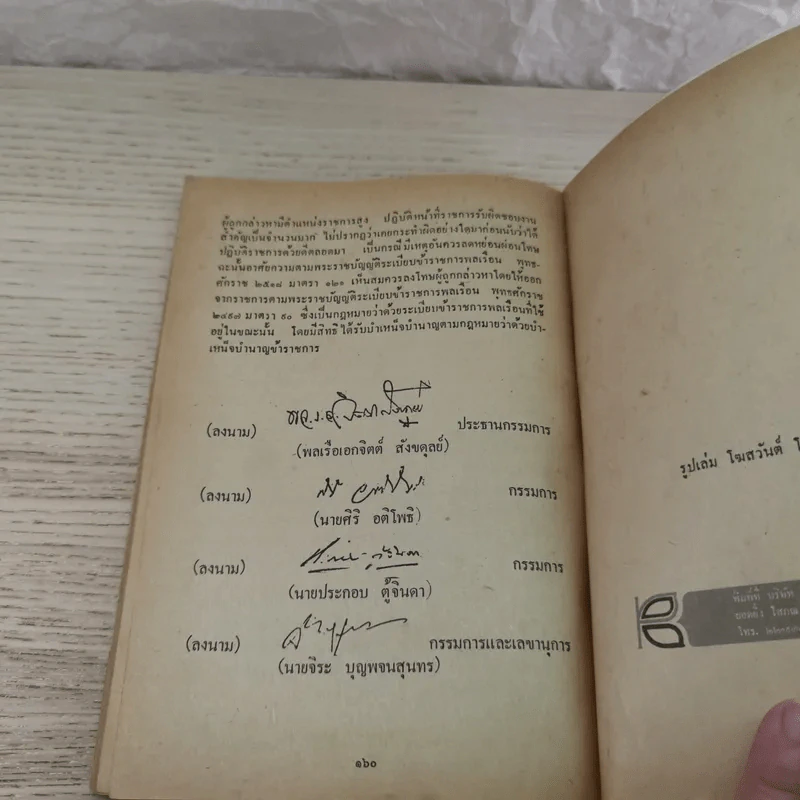 ผู้ถูกกล่าวหามีตำแหน่งราชการสูง ปฏิบัติหน้าที่ราชการรับผิดชอบงาน
สำคัญเป็นจำนวนมาก ไม่ปรากฏว่าเคยกระทำผิดอย่างใดมาก่อนนับว่าได้
ปฏิบัติราชการด้วยดีตลอดมา เป็นกรณีมีเหตุอันควรลดหย่อนผ่อนโทษ
ฉะนั้นอาศัยความตามพระราชบัญญัติระเบียบข้าราชการพลเรือน พุทธ-
ศักราช ๒๕๑๘ มาตรา ๑๒๑ เห็นสมควรลงโทษผู้ถูกกล่าวหาโดยให้ออก
จากราชการตามพระราชบัญญัติระเบียบข้าราชการพลเรือน พุทธศักราช
๒๔๙๗ มาตรา ๙๐ ซึ่งเป็นกฎหมายว่าด้วยระเบียบข้าราชการพลเรือนที่ใช้
อยู่ในขณะนั้น โดยมีสิทธิได้รับบำเหน็จบำนาญตามกฎหมายว่าด้วยบำ-
เหน็จบำนาญข้าราชการ
(ลงนาม) ประธานกรรมการ
(พลเรือเอกจิตต์ สังขดุลย์)
(ลงนาม) กรรมการ
(นายศิริ อติโพธิ)
(ลงนาม) กรรมการ
(นายประกอบ ตู้จินดา)
(ลงนาม) กรรมการและเลขานุการ
(นายจิระ บุญพจนสุนทร)
๑๖๐
รูปเล่ม โฆสวันต์
พิมพ์ที่ บริษัท
โทร.